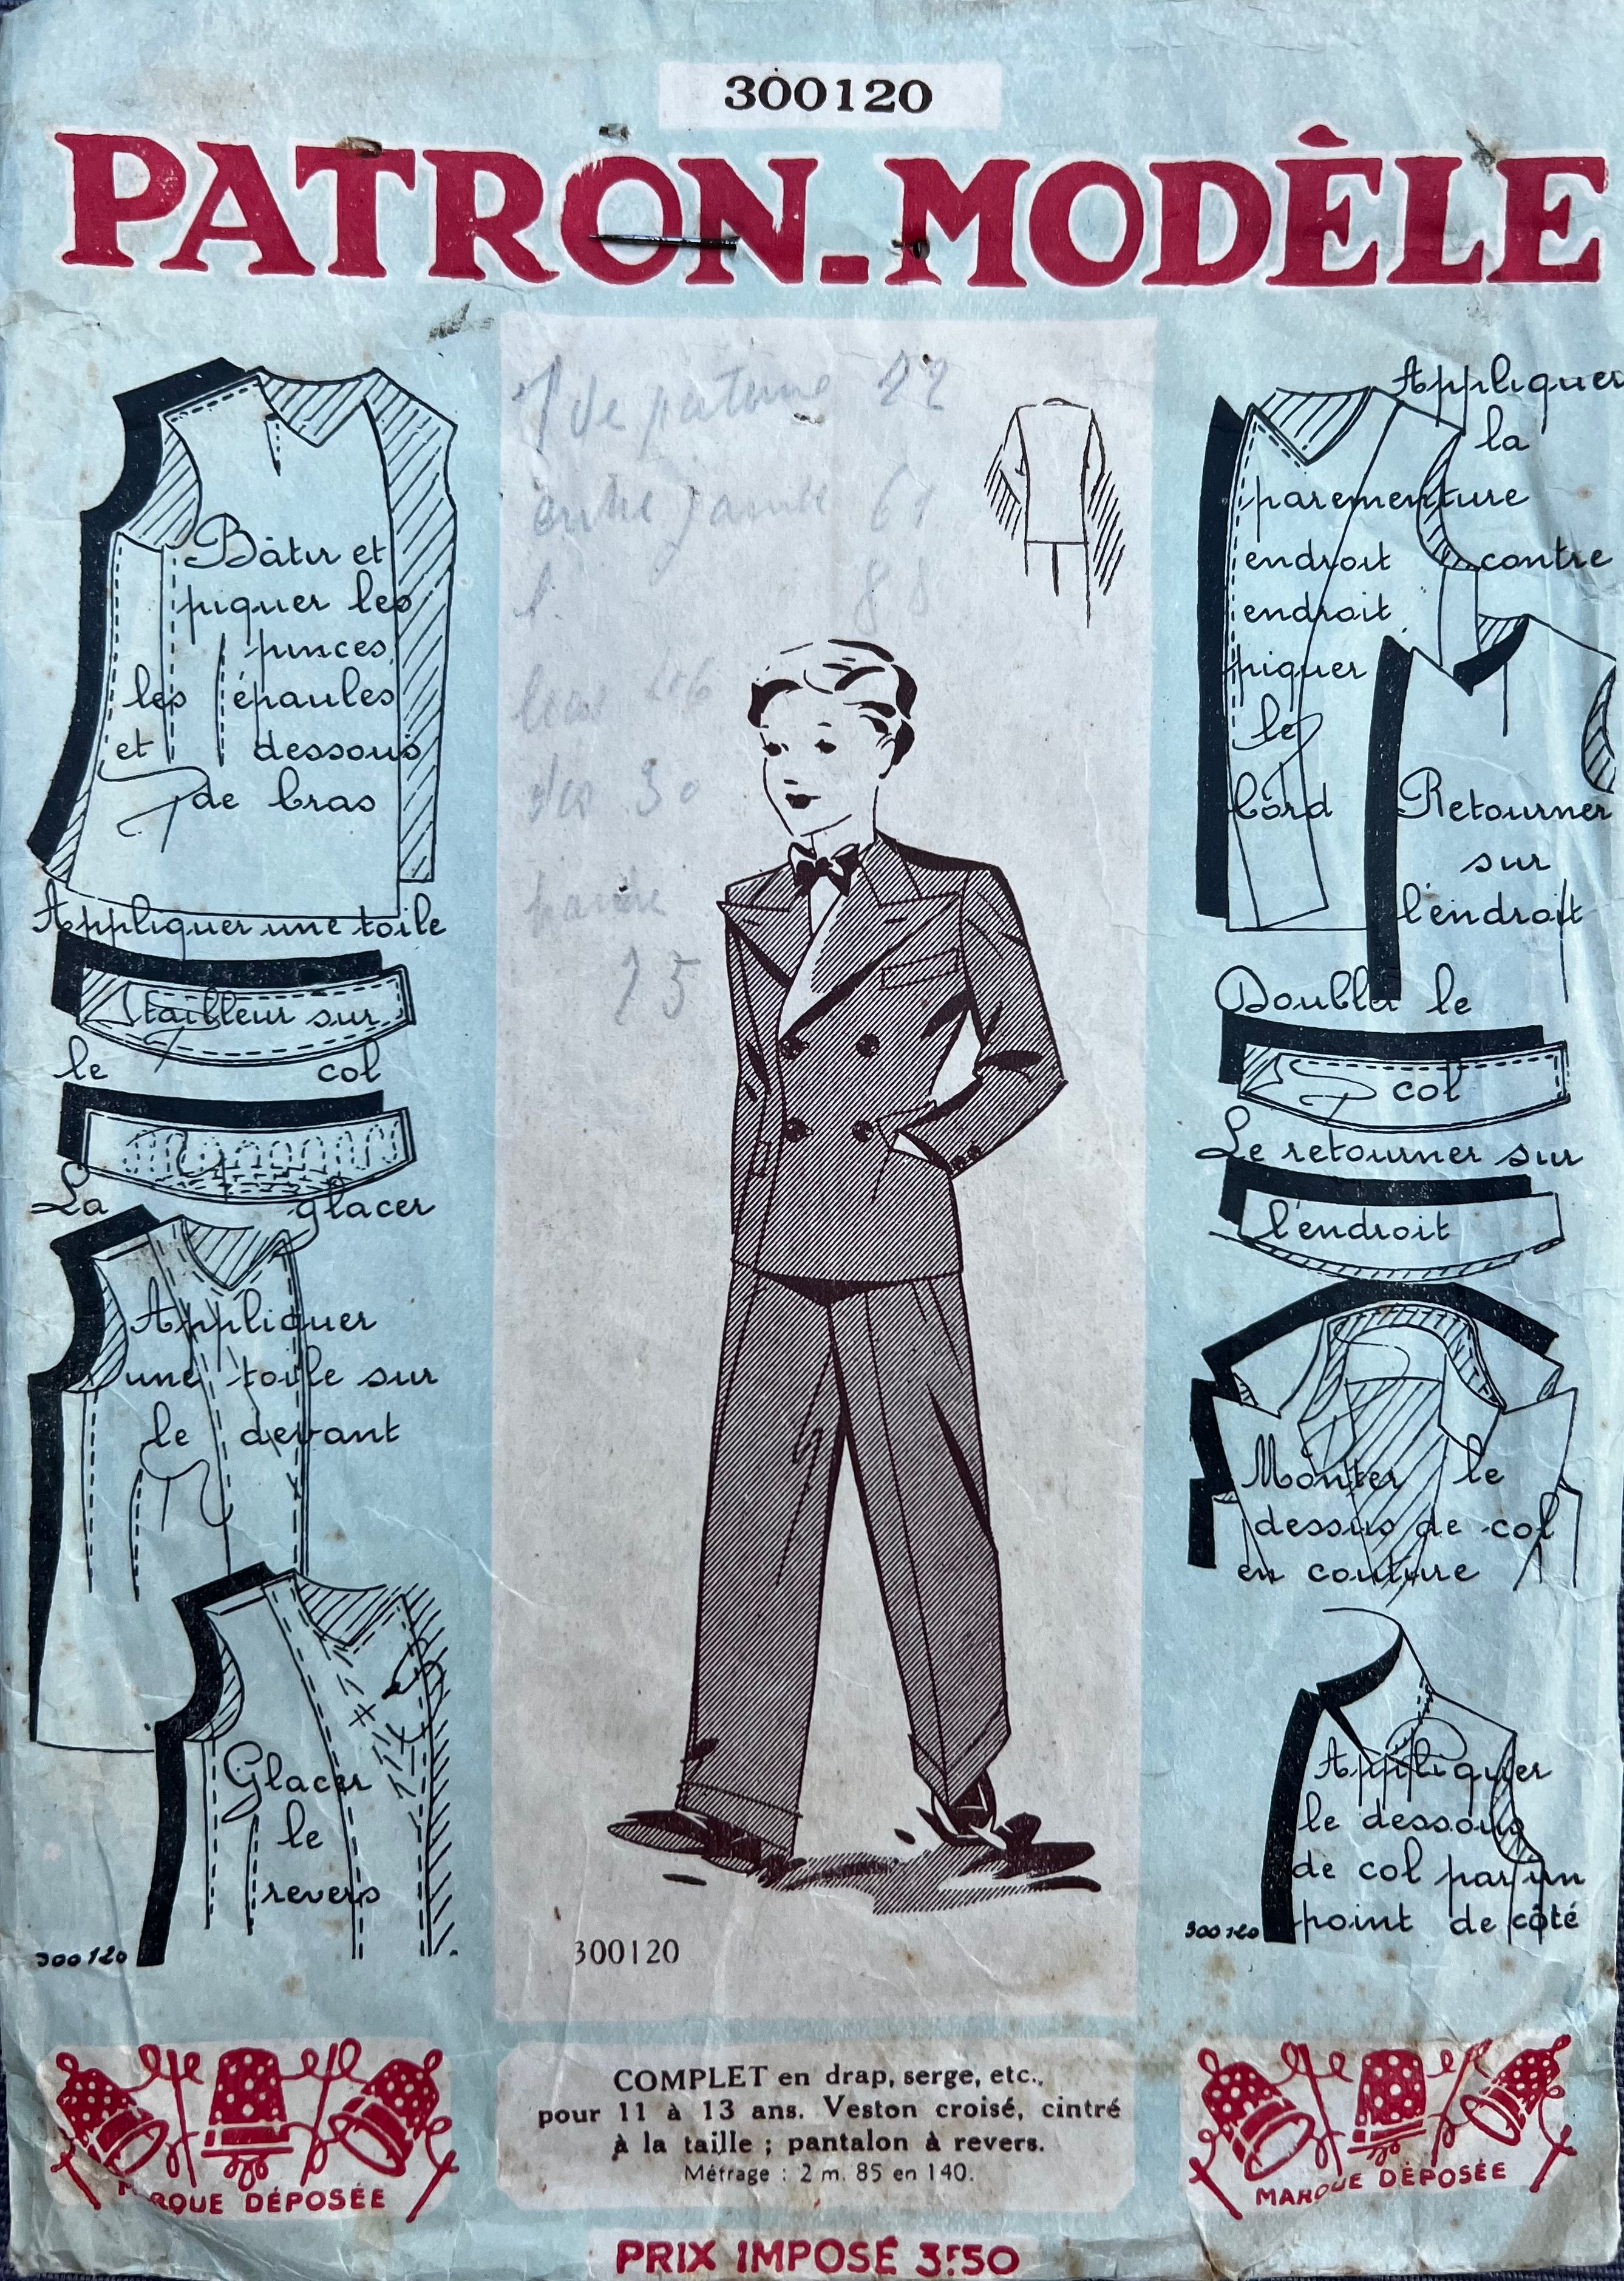 300120
PATRON-MODÈLE
Bâtir et
piquer les
pinces
les épaules
et dessous
de bras
Appliquer une toile
tailleur sur
le col
La glacer
Appliquer
une toile sur
le devant
Glacer
le
revers
300120
22
61
88
30
300120
Appliquer
la
parementure
endroit contre
endroit
piquer
le
bord
Retourner
sur
l'endroit
Doubler le
col
Le retourner sur
l'endroit
Monter le
dessus de col
en couture
Appliquer
le dessous
de col par un
point de côté
300120
MARQUE DÉPOSÉE
COMPLET en drap, serge, etc.,
pour 11 à 13 ans. Veston croisé, cintré
à la taille ; pantalon à revers.
Métrage : 2 m. 85 en 140.
MARQUE DÉPOSÉE
PRIX IMPOSÉ 3F50